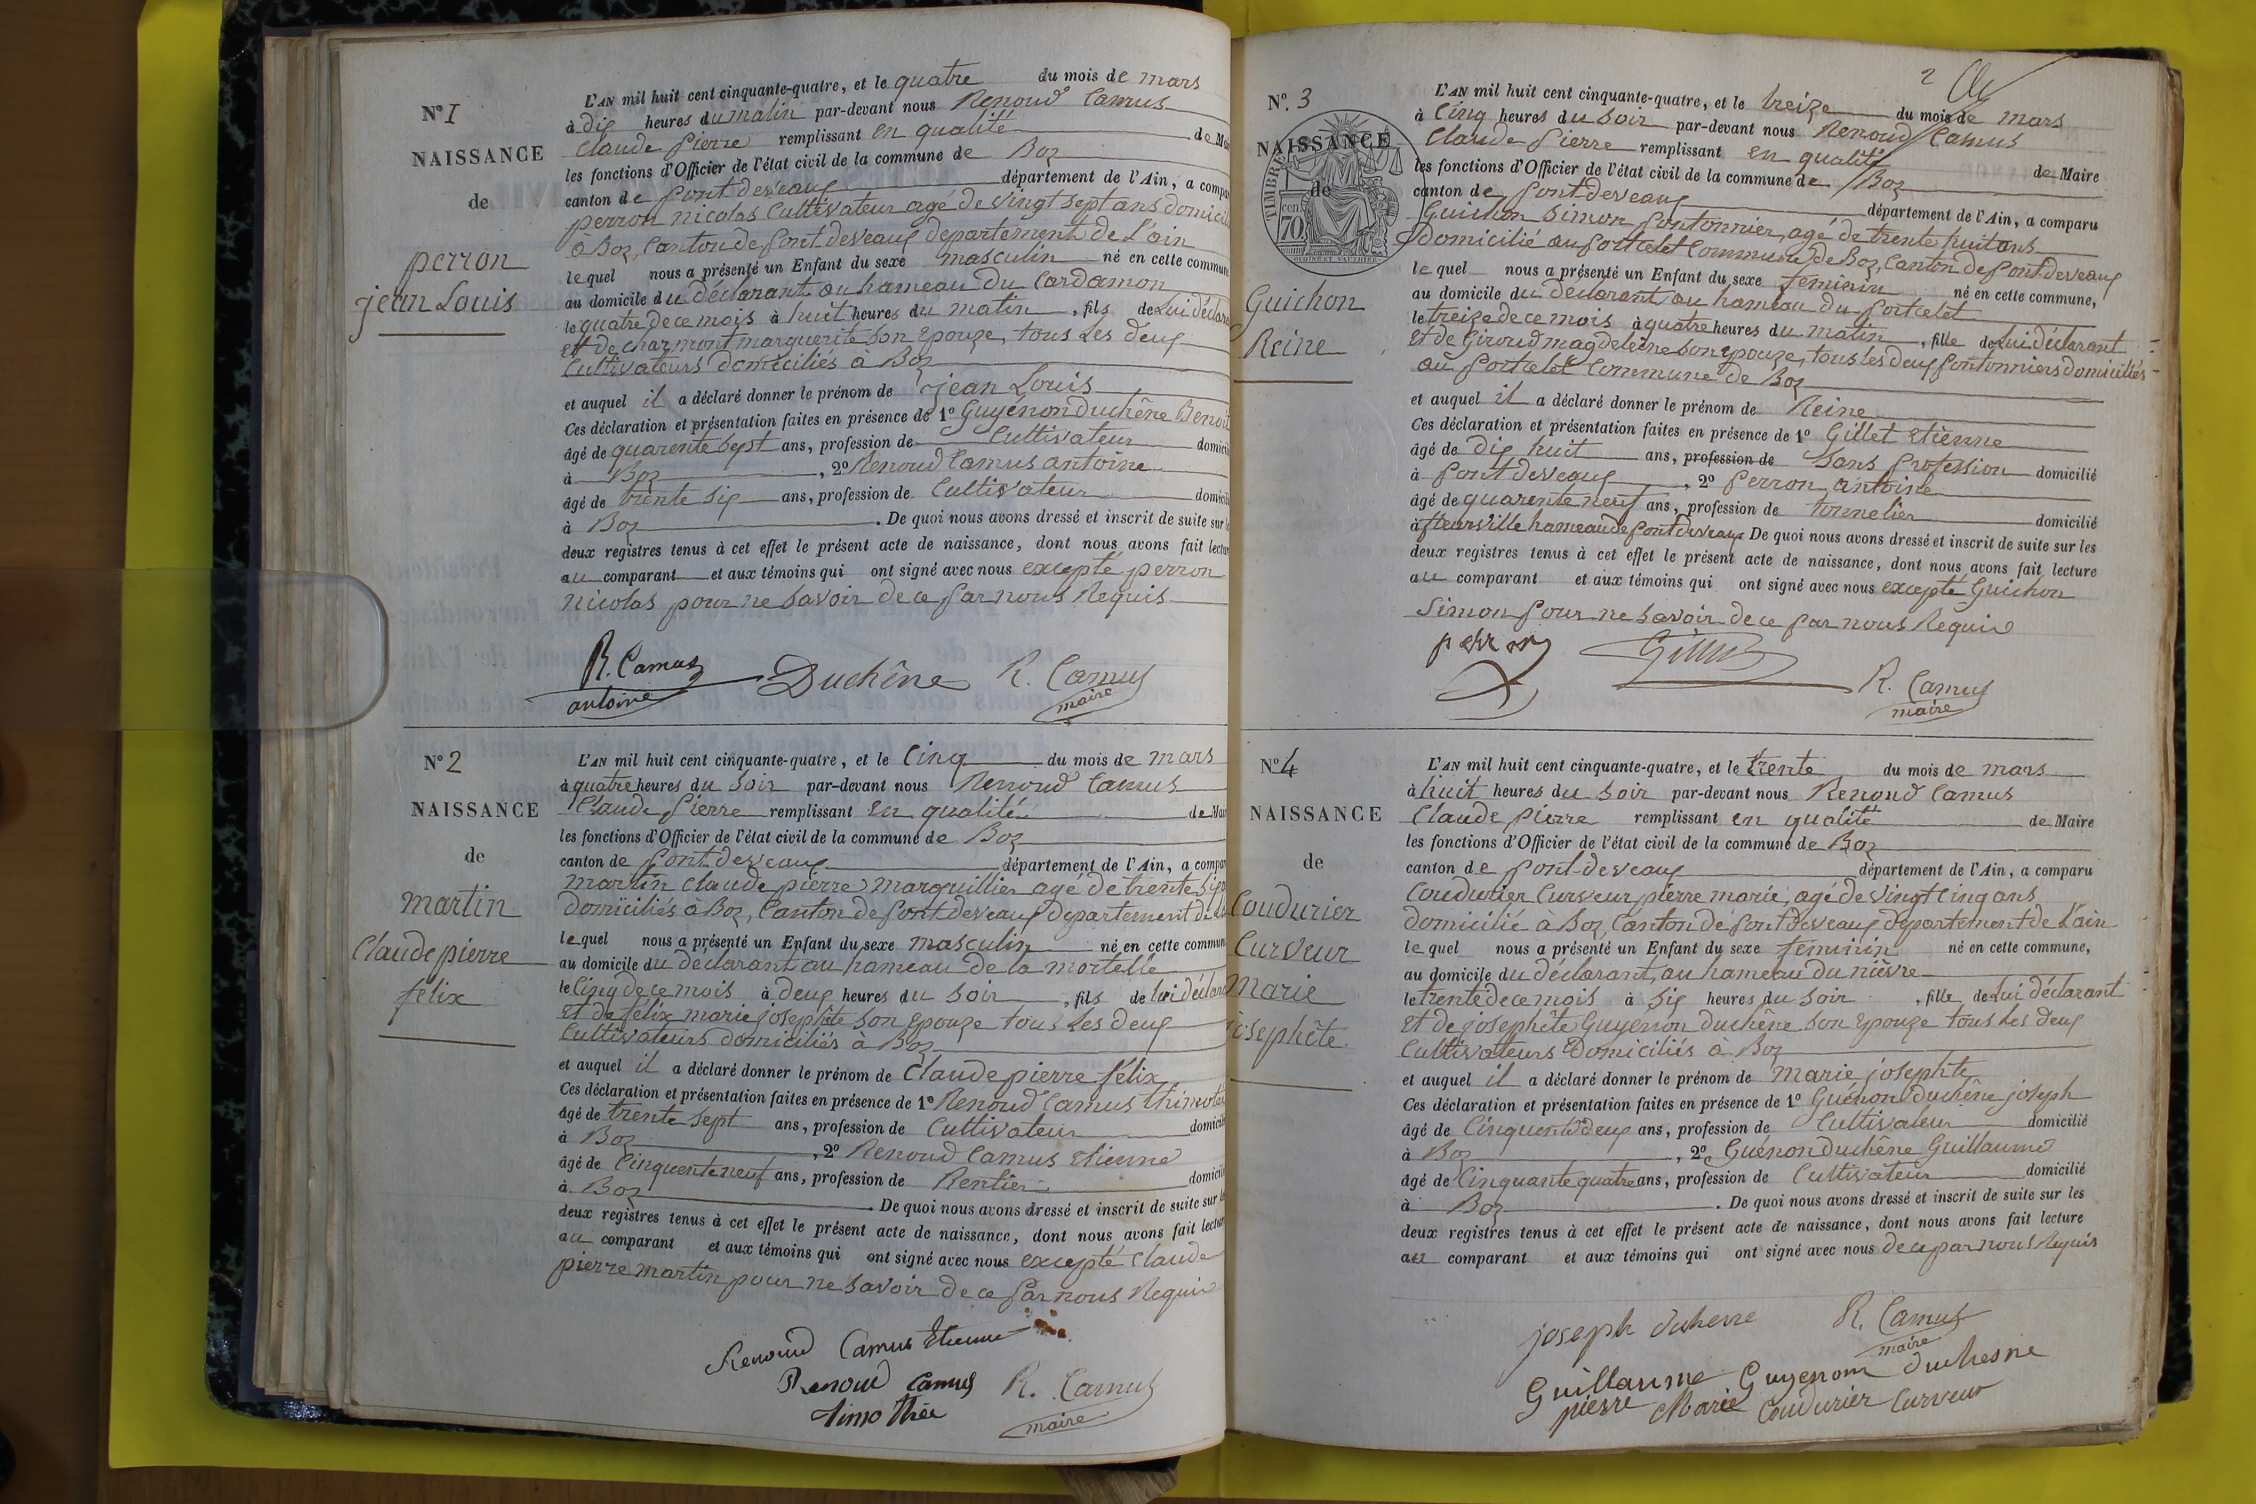 N° 1
NAISSANCE
de
perron
jean Louis
L'AN mil huit cent cinquante-quatre, et le quatre du mois de mars
à dix heures du matin par-devant nous Renoud Camus
Claude Pierre remplissant en qualité de
les fonctions d'Officier de l'état civil de la commune de Boz
canton de Pont devaux département de l'Ain, a
perron nicolas Cultivateur agé de vingt sept ans
à Boz, Canton de Pont deveaux département de l'ain
lequel nous a présenté un Enfant du sexe masculin né en cette commune
au domicile du déclarant au hameau du Cardamon
le quatre de ce mois à huit heures du matin, fils de Lui
Et de charmont marguerite son Epouze, tous Les deux
Cultivateurs domiciliés à Boz
et auquel il a déclaré donner le prénom de jean Louis
Ces déclaration et présentation faites en présence de 1° Guyénon Duchêne Benoit
âgé de quarente sept ans, profession de Cultivateur
à Boz, 2° Renoud Camus antoine
âgé de trente six ans, profession de Cultivateur
à Boz. De quoi nous avons dressé et inscrit de suite sur
deux registres tenus à cet effet le présent acte de naissance, dont nous avons fait
au comparant et aux témoins qui ont signé avec nous excepté perron
nicolas pour ne savoir de ce par nous Requis
R. Camus
antoine
Duchêne
R. Camus
maire
N° 2
NAISSANCE
de
martin
Claude pierre
félix
L'AN mil huit cent cinquante-quatre, et le Cinq du mois de mars
à quatre heures du Soir par-devant nous Renoud Camus
Claude Pierre remplissant en qualité de
les fonctions d'Officier de l'état civil de la commune de Boz
canton de Pont-deveaux département de l'Ain, a
martin Claude pierre marguillier agé de trente
domiciliés à Boz, Canton de Pont deveaux département de
lequel nous a présenté un Enfant du sexe masculin né en cette
au domicile du déclarant au hameau de la mortelle
le Cinq de ce mois à deux heures du Soir, fils de lui
Et de félix marie josephte Son Epouze tous Les deux
Cultivateurs domiciliés à Boz
et auquel il a déclaré donner le prénom de Claude pierre félix
Ces déclaration et présentation faites en présence de 1° Renoud Camus
âgé de trente sept ans, profession de Cultivateur
à Boz, 2° Renoud Camus Etienne
âgé de Cinquente neuf ans, profession de Rentier
à Boz. De quoi nous avons dressé et inscrit de suite sur
deux registres tenus à cet effet le présent acte de naissance, dont nous avons fait
au comparant et aux témoins qui ont signé avec nous excepté Claude
pierre martin pour ne Savoir de ce par nous Requis
Renoud Camus Etienne
Renoud Camus
timothée
R. Camus
maire
2
N° 3
NAISSANCE
de
TIMBRE
cen
70
Guichon
Reine
L'AN mil huit cent cinquante-quatre, et le treize du mois de mars
à Cinq heures du Soir par-devant nous Renoud Camus
Claude Pierre remplissant en qualité de Maire
les fonctions d'Officier de l'état civil de la commune de Boz
canton de Pont-deveaux département de l'Ain, a comparu
Guichon Simon Pontonnier, agé de trente huit ans
Domicilié au Portelet Commune de Boz, Canton de Pont deveaux
lequel nous a présenté un Enfant du sexe féminin né en cette commune,
au domicile du déclarant au hameau du Portelet
le treize de ce mois à quatre heures du matin, fille de Lui déclarant
Et de Giroud magdeleine son Epouze, tous les deux Pontonniers domiciliés
au Portelet Commune de Boz
et auquel il a déclaré donner le prénom de Reine
Ces déclaration et présentation faites en présence de 1° Gillet Etienne
âgé de dix huit ans, profession de Sans Profession domicilié
à Pont deveaux, 2° Perron antoine
âgé de quarente neuf ans, profession de tonnelier domicilié
à fleurville hameau de Pont deveaux De quoi nous avons dressé et inscrit de suite sur les
deux registres tenus à cet effet le présent acte de naissance, dont nous avons fait lecture
au comparant et aux témoins qui ont signé avec nous excepté Guichon
Simon Pour ne Savoir de ce par nous Requis
perron
Gillet
R. Camus
maire
N° 4
NAISSANCE
de
Coudurier
Curveur
Marie
josephte
L'AN mil huit cent cinquante-quatre, et le trente du mois de mars
à huit heures du Soir par-devant nous Renoud Camus
Claude Pierre remplissant en qualité de Maire
les fonctions d'Officier de l'état civil de la commune de Boz
canton de Pont-deveaux département de l'Ain, a comparu
Coudurier Curveur pierre marie, agé de vingt Cinq ans
domicilié à Boz, Canton de Pont deveaux département de L'ain
lequel nous a présenté un Enfant du sexe féminin né en cette commune,
au domicile du déclarant, au hameau du nièvre
le trente de ce mois à Six heures du Soir, fille de Lui déclarant
Et de josephte Guyénon duchêne Son Epouze tous Les deux
Cultivateurs Domiciliés à Boz
et auquel il a déclaré donner le prénom de Marie josephte
Ces déclaration et présentation faites en présence de 1° Guénon Duchêne joseph
âgé de Cinquente deux ans, profession de Cultivateur domicilié
à Boz, 2° Guénon Duchêne Guillaume
âgé de Cinquante quatre ans, profession de Cultivateur domicilié
à Boz. De quoi nous avons dressé et inscrit de suite sur les
deux registres tenus à cet effet le présent acte de naissance, dont nous avons fait lecture
au comparant et aux témoins qui ont signé avec nous de ce par nous Requis
joseph duhesne
R. Camus
maire
Guillaume Guyenom duchesne
pierre Marie Coudurier Curveur